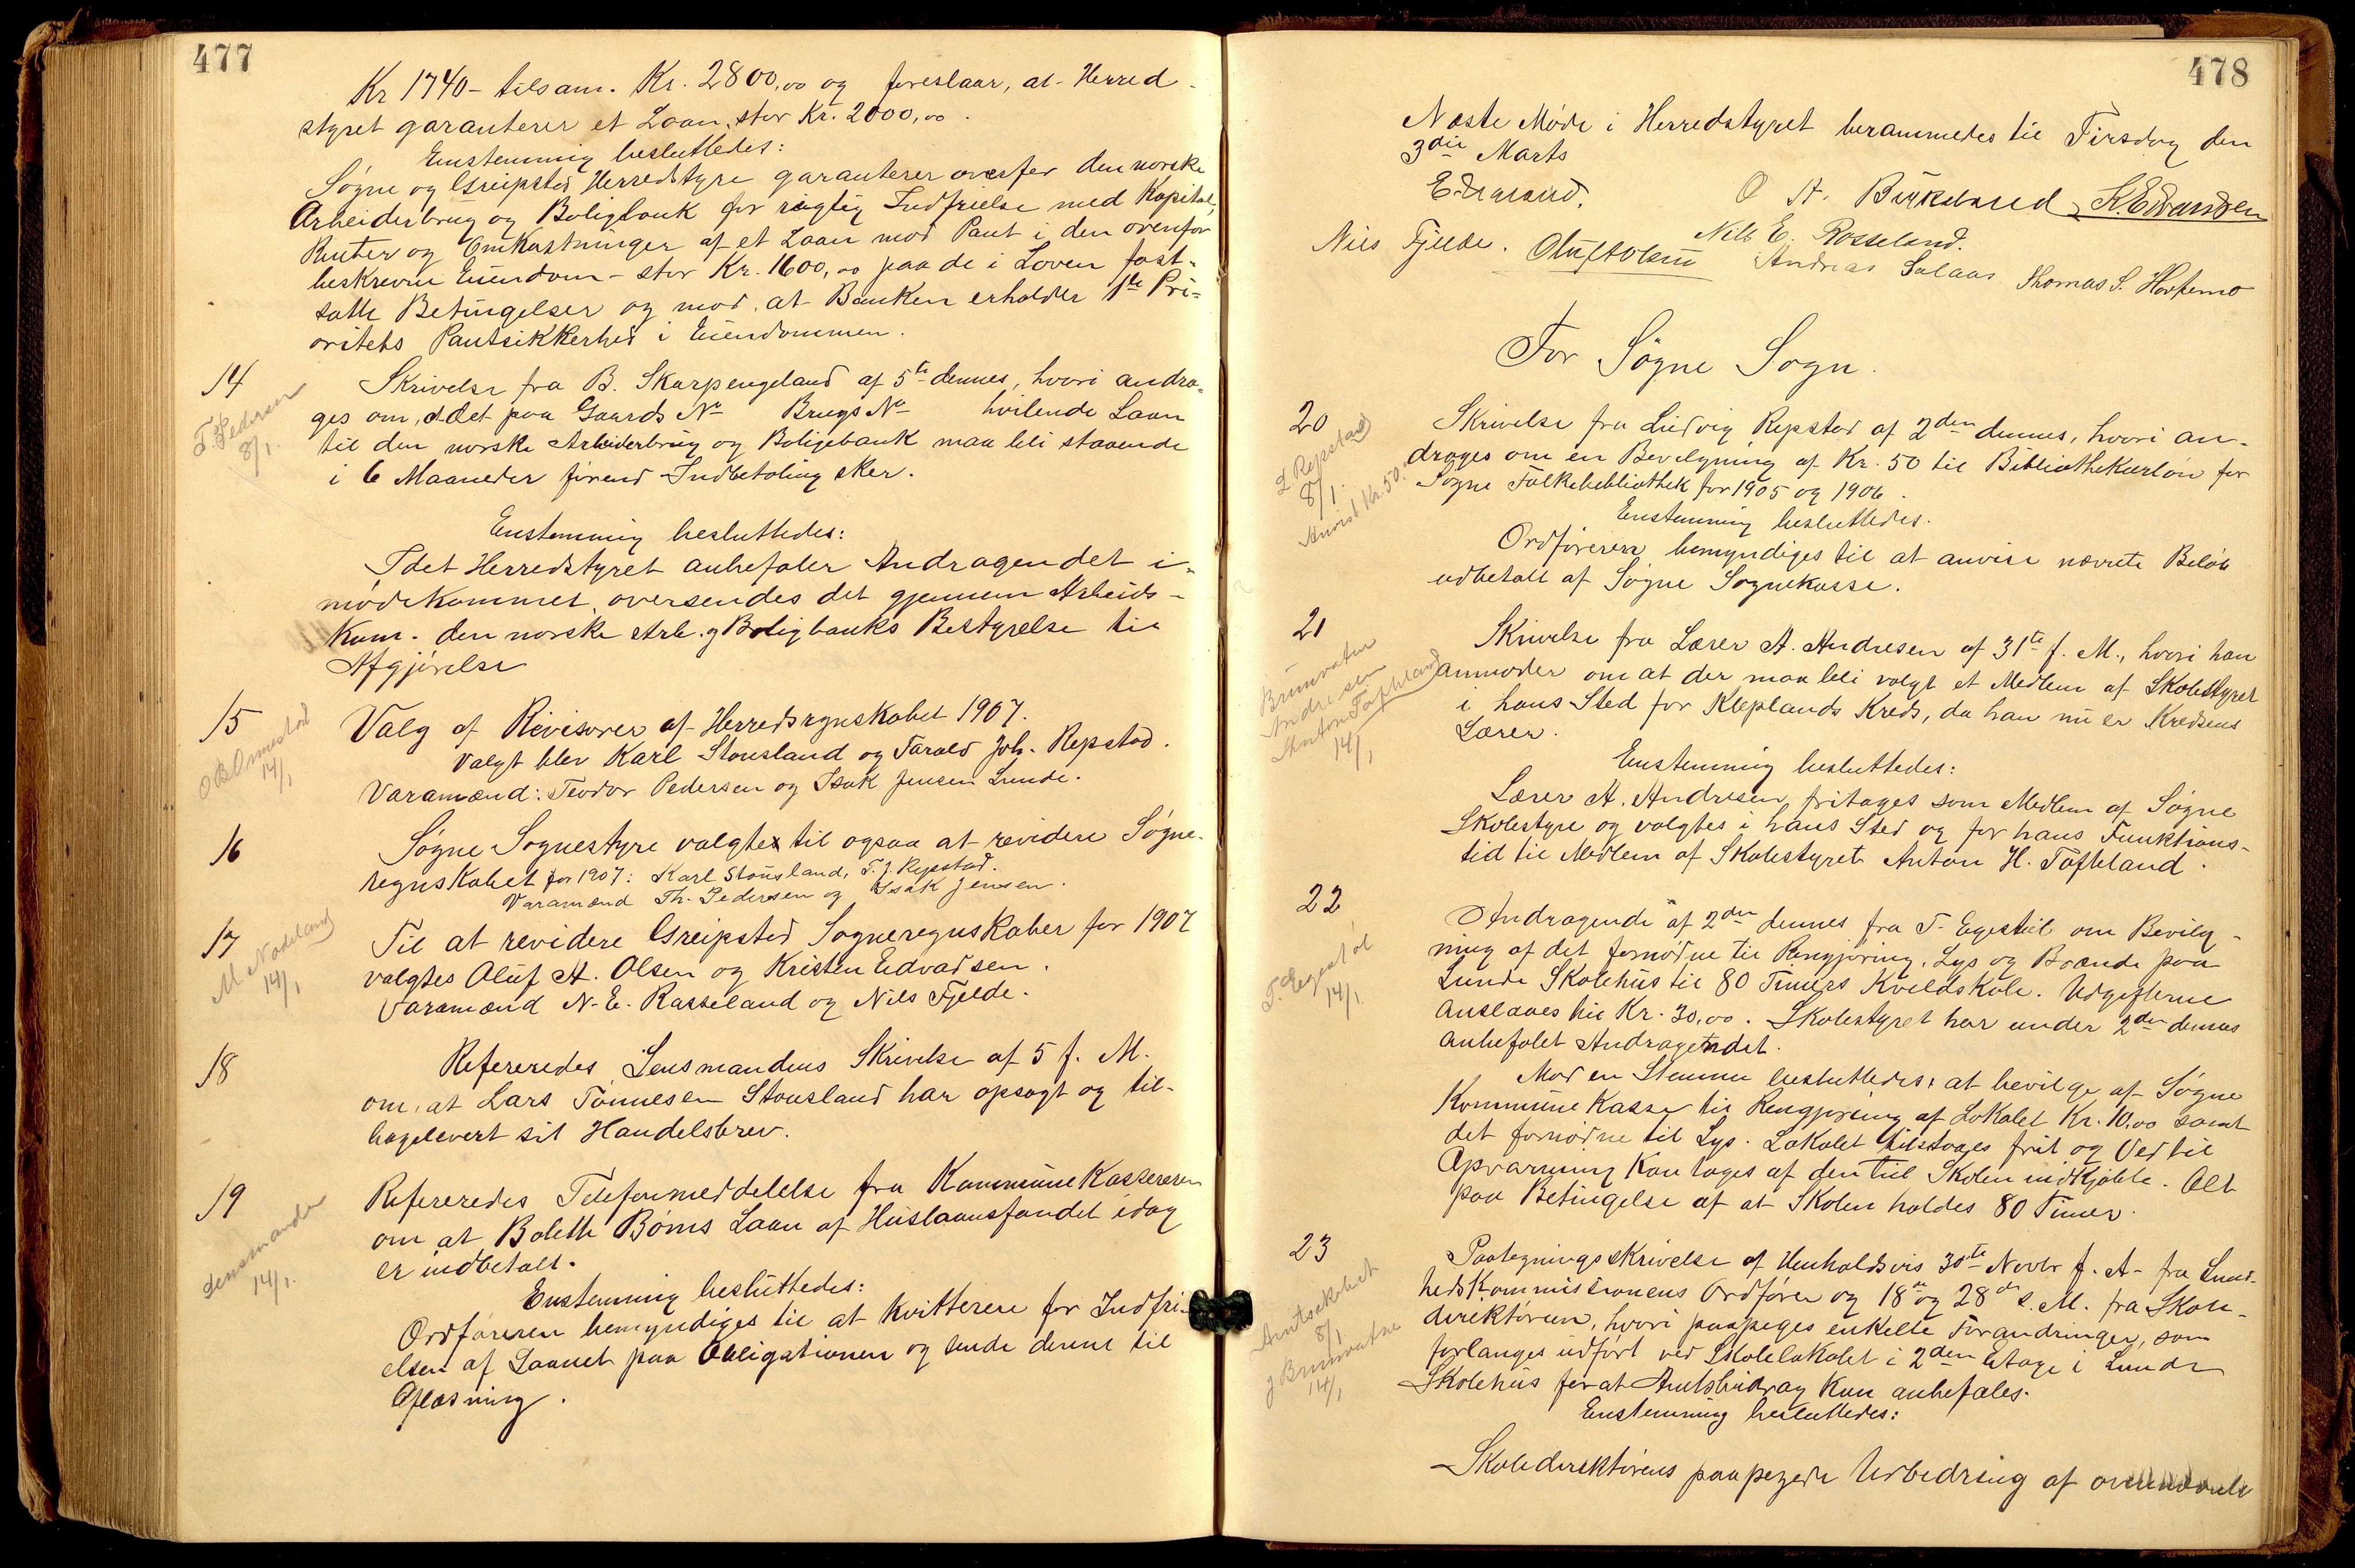 477
Kr 1740 - tilsam. Kr. 2800,00 og foreslaar, at Herred-
styret garanterer et Laan, stor Kr. 2000,00.
Enstemmig besluttedes:
Søgne og Greipsted Herredstyre garanterer overfor den norske
Arbeiderbrug og Boligbank for rigtig Indfrielse med Kapital,
Renter og Omkostninger af et Laan mod Pant i den ovenfor
beskrevne Eiendom - stor Kr. 1600,00 paa de i Loven fast-
satte Betingelser og mod, at Banken erholder 1ste Pri-
oritets Pantsikkerhed i Eiendommen.
14
T. Pedersen
8/1.
Skrivelse fra B. Skarpengeland af 5te dennes, hvori andra-
ges om, at det paa Gaards No Brugs No hvilende Laan
til den norske Arbeiderbrug og Boligebank maa bli staaende
i 6 Maaneder førend Indbetaling sker.
Enstemmig besluttedes:
Idet Herredstyret anbefaler Andragendet i-
mødekommet, oversendes det gjennem Arbeids-
Kom. den norske Arb. og Boligbanks Bestyrelse til
Afgjørelse
15
O B Omestad
14/1
Valg af Revisorer af Herredsregnskabet 1907.
Valgt blev Karl Stousland og Tarald Joh. Repstad.
Varamænd: Teodor Pedersen og Isak Jensen Lunde.
16
Søgne Sognestyre valgtes til ogsaa at revidere Søgne-
regnskabet for 1907: Karl Stousland, T. J. Repstad.
Varamænd Th. Pedersen og Isak Jensen.
17
M Nodeland
14/1
Til at revidere Greipsted Sogneregnskaber for 1907
valgtes Oluf A. Olsen og Kristen Edvardsen.
Varamænd N. E. Rosseland og Nils Fjelde.
18
Refereredes Lensmandens Skrivelse af 5 f. M.
om, at Lars Tønnesen Stousland har opsagt og til-
bagelevert sit Handelsbrev.
19
Lensmanden
14/1.
Refereredes Telefonmeddelelse fra Kommunekassereren
om at Bolette Bøms Laan af Huslaansfondet idag
er indbetalt.
Enstemmig besluttedes:
Ordføreren bemyndiges til at kvitterere for Indfri-
elsen af Laanet paa Obligationen og sende denne til
Aflæsning.
478
Næste Møde i Herredstyret berammedes til Tirsdag den
3die Marts
O A. Birkeland K. Edvardsen
Nils Fjelde. Oluf A Olsen Nils E. Rosseland.
Andreas Salaas Thomas S. Hortemo
For Søgne Sogn.
20
L Repstad
8/1.
Anvist Kr. 50.
Skrivelse fra Ludvig Repstad af 2den dennes, hvori an-
drages om en Bevilgning af Kr. 50 til Bibliothekarløn for
Søgne Folkebibliothek for 1905 og 1906.
Enstemmig besluttedes.
Ordføreren bemyndiges til at anvise nævnte Beløb
udbetalt af Søgne Sognekasse.
21
Brunvatne
Andresen
Anton Tofteland
14/1
Skrivelse fra Lærer A. Andresen af 31te f. M., hvori han
anmoder om at der maa bli valgt et Medlem af Skolestyret
i hans Sted for Kleplands Kreds, da han nu er Kredsens
Lærer.
Enstemmig besluttedes:
Lærer A. Andresen fritages som Medlem af Søgne
Skolestyre og valgtes i hans Sted og for hans Funktions-
tid til Medlem af Skolestyret Anton H. Tofteland.
22
T. Egestøl
14/1
Andragende af 2den dennes fra T. Egestøl om Bevilg-
ning af det fornødne til Rengjøring, Lys og Brænde paa
Lunde Skolehus til 80 Timers Kveldskole. Udgifterne
anslaaes til Kr. 30,00. Skolestyret har under 2den dennes
anbefalet Andragendet.
Mod en Stemme besluttedes, at bevilge af Søgne
Kommunekasse til Rengjøring af Lokalet Kr. 10,00 samt
det fornødne til Lys. Lokalet tilstaaes frit og Ved til
Opvarming kan tages af den til Skolen indkjøbte. Alt
paa Betingelse af at Skolen holdes 80 Timer.
23
Amtsskabet
8/1
J Brunvatne
14/1
Paategningsskrivelse af Henholdsvis 30te Novbr f. A. fra Sund-
hedskommissionens Ordfører og 18de og 28de s. M. fra Skole-
direktøren, hvori paapeges enkelte Forandringer, som
forlanges udført ved Skolelokalet i 2den Etage i Lunde
Skolehus for at Amtsbidrag kan anbefales.
Enstemmig besluttedes:
Skoledirektørens paapegede Udbedring af ovennævnte